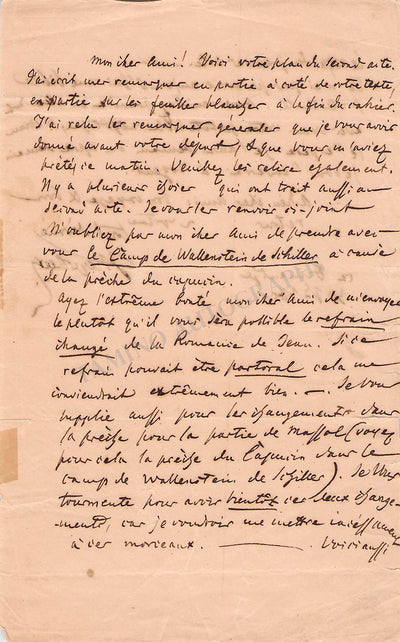 mon cher Ami! Voici votre plan du second acte.
J'ai écrit mes remarques en partie à coté de votre texte,
en partie sur les feuilles blanches à la fin du cahier.
J'ai relu les remarques générales que je vous avois
donné avant votre départ, & que vous m'aviez
prêté ce matin. Veuillez les relire également.
Il y a plusieurs choses qui ont trait aussi au
second acte. Je vous les renvoie ci-joint
N'oubliez pas mon cher Ami de prendre avec
vous le Camp de Wallenstein de Schiller à cause
de la prêche du capucin.
ayez l'extrême bonté mon cher Ami de m'envoyer
le plutôt qu'il vous sera possible le refrain
changé de la Romance de Jean. Si ce
refrain pouvait être pastoral cela me
conviendrait extrêmement bien. — Je vous
supplie aussi pour les changements dans
la prêche pour la partie de Massol (voyez
pour cela la prêche du Capucin dans le
camp de Wallenstein de Schiller). Je vous
tourmente pour avoir bientôt ces deux change-
ments, car je voudrois me mettre incessament
à ces morceaux. — Voici aussi